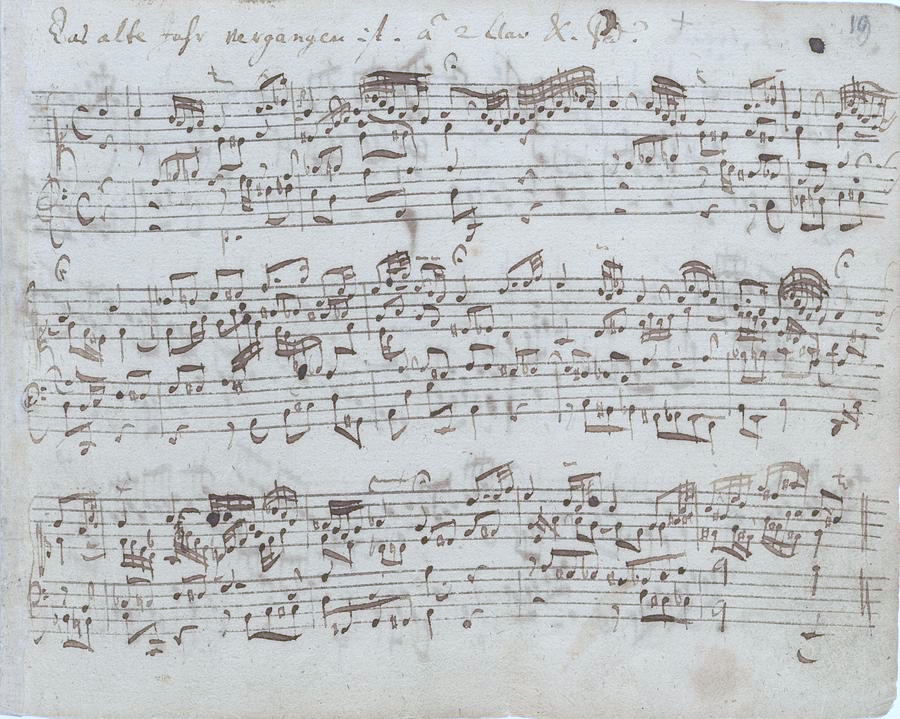 Das alte Jahr vergangen ist. â 2 Clav & Ped.
19